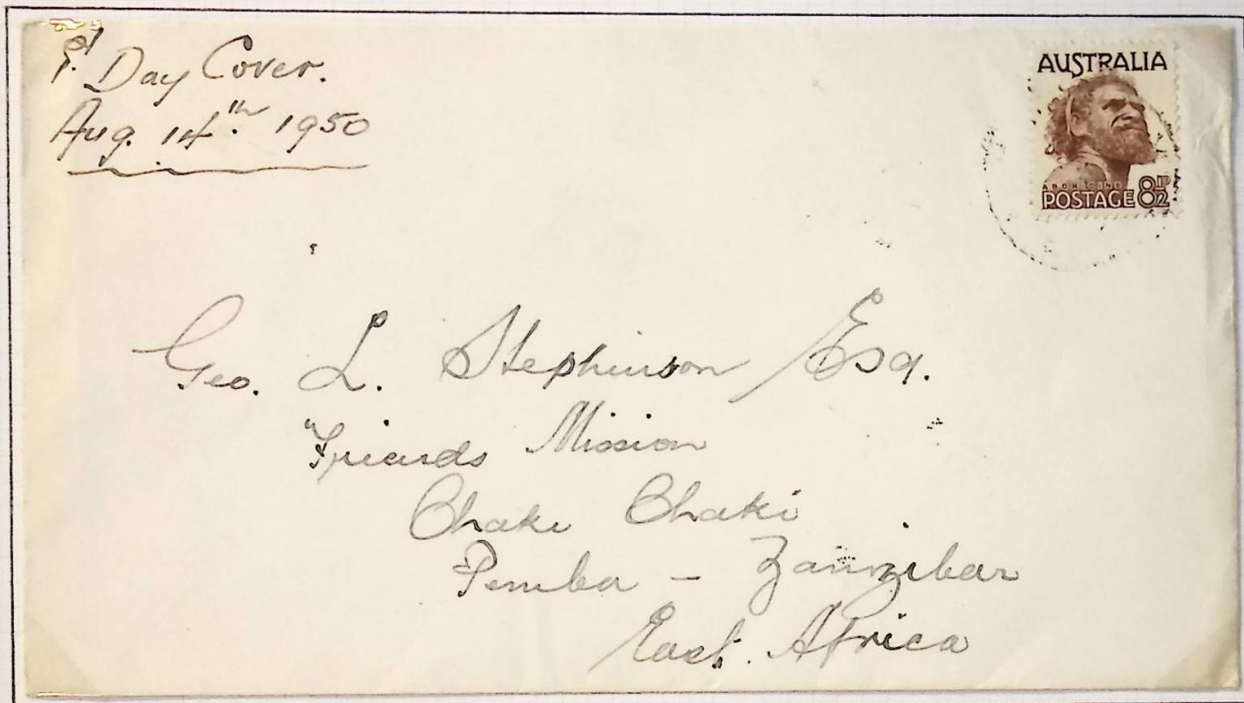 1st Day Cover.
Aug. 14th. 1950
AUSTRALIA
ABORIGINE
POSTAGE 8½D
Geo. L. Stephinson Esq.
"Friends Mission
Chake Chake
Pemba - Zanzibar
East. Africa